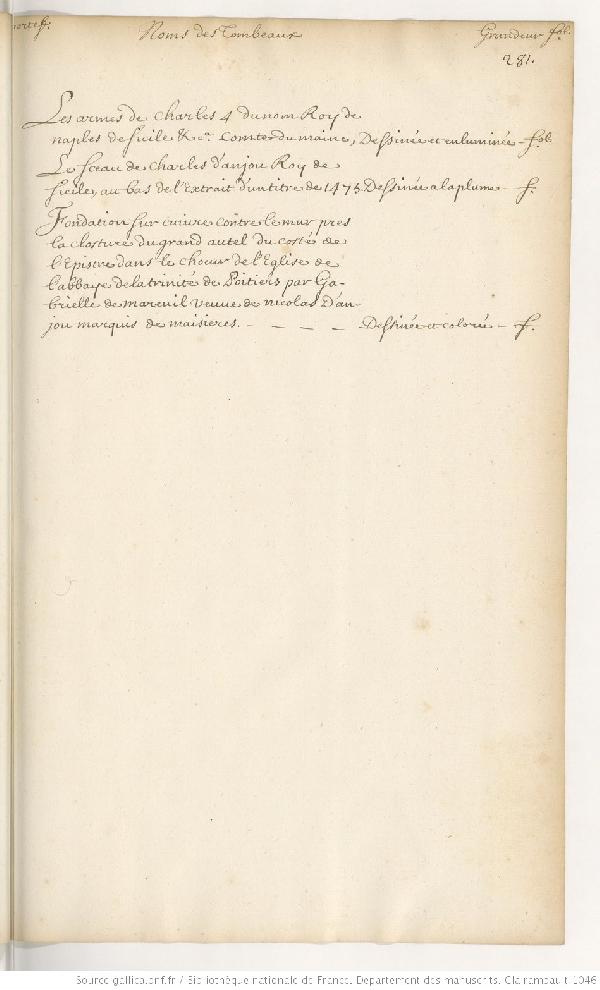 Noms des Tombeaux
Grandeur fol.
281.
Les armes de Charles 4 du nom Roy de
naples de sicile &c.ª Comte du maine, Dessinée et enluminée - fol.
Le sceau de Charles d'anjou Roy de
sicile, au bas de l'extrait d'un titre de 1475. Dessinée a la plume - f.
Fondation sur cuivre contre le mur pres
la closture du grand autel du costé de
l'Epistre dans le choeur de l'Eglise de
l'abbaye de la trinité de Poitiers par Ga-
brielle de mareuil veuue de nicolas D'an-
jou marquis de maisieres. - - - - Dessinée et colorié - f.
Source gallica.bnf.fr / Bibliothèque nationale de France. Département des manuscrits. Clairambault 1046